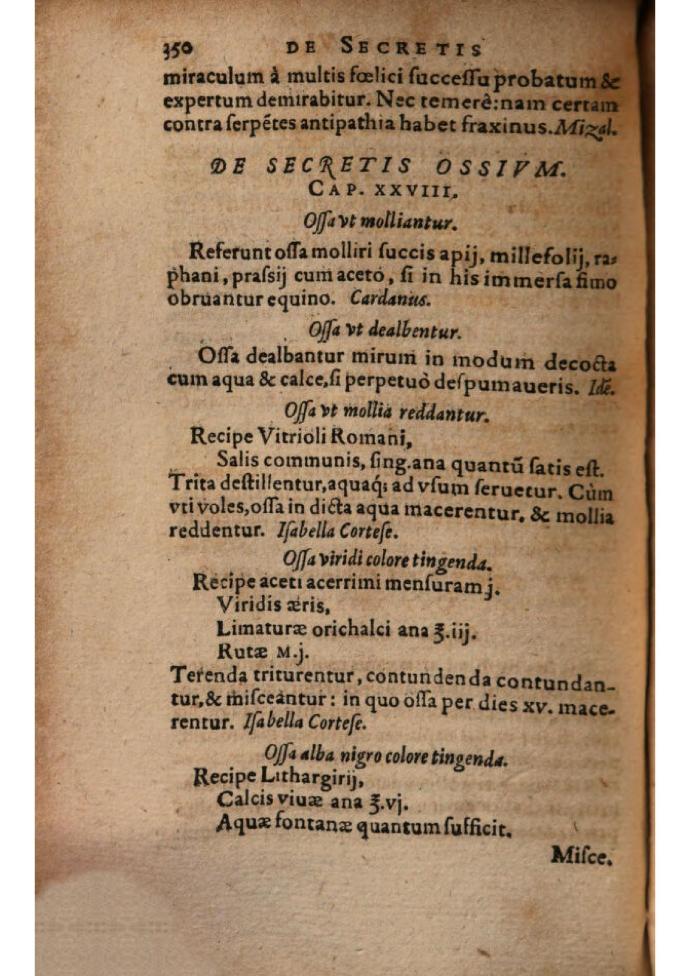 350 DE SECRETIS
miraculum à multis fœlici ſucceſſu probatum &
expertum demirabitur. Nec temerê: nam certam
contra ſerpẽtes antipathia habet fraxinus. Mizal.
DE SECRETIS OSSIVM.
CAP. XXVIII.
Oſſa vt molliantur.
Referunt oſſa molliri ſuccis apij, millefolij, ra-
phani, praſsij cum aceto, ſi in his immerſa fimo
obruantur equino. Cardanus.
Oſſa vt dealbentur.
Oſſa dealbantur mirum in modum decocta
cum aqua & calce, ſi perpetuò deſpumaueris. Idẽ.
Oſſa vt mollia reddantur.
Recipe Vitrioli Romani,
Salis communis, ſing. ana quantũ ſatis eſt.
Trita deſtillentur, aquaq; ad vſum ſeruetur. Cùm
vti voles, oſſa in dicta aqua macerentur, & mollia
reddentur. Iſabella Corteſe.
Oſſa viridi colore tingenda.
Recipe aceti acerrimi menſuram j.
Viridis æris,
Limaturæ orichalci ana ℥.iij.
Rutæ M.j.
Terenda triturentur, contundenda contundan-
tur, & miſceantur: in quo oſſa per dies xv. mace-
rentur. Iſabella Corteſe.
Oſſa alba nigro colore tingenda.
Recipe Lithargirij,
Calcis viuæ ana ℥.vj.
Aquæ fontanæ quantum ſufficit.
Miſce.